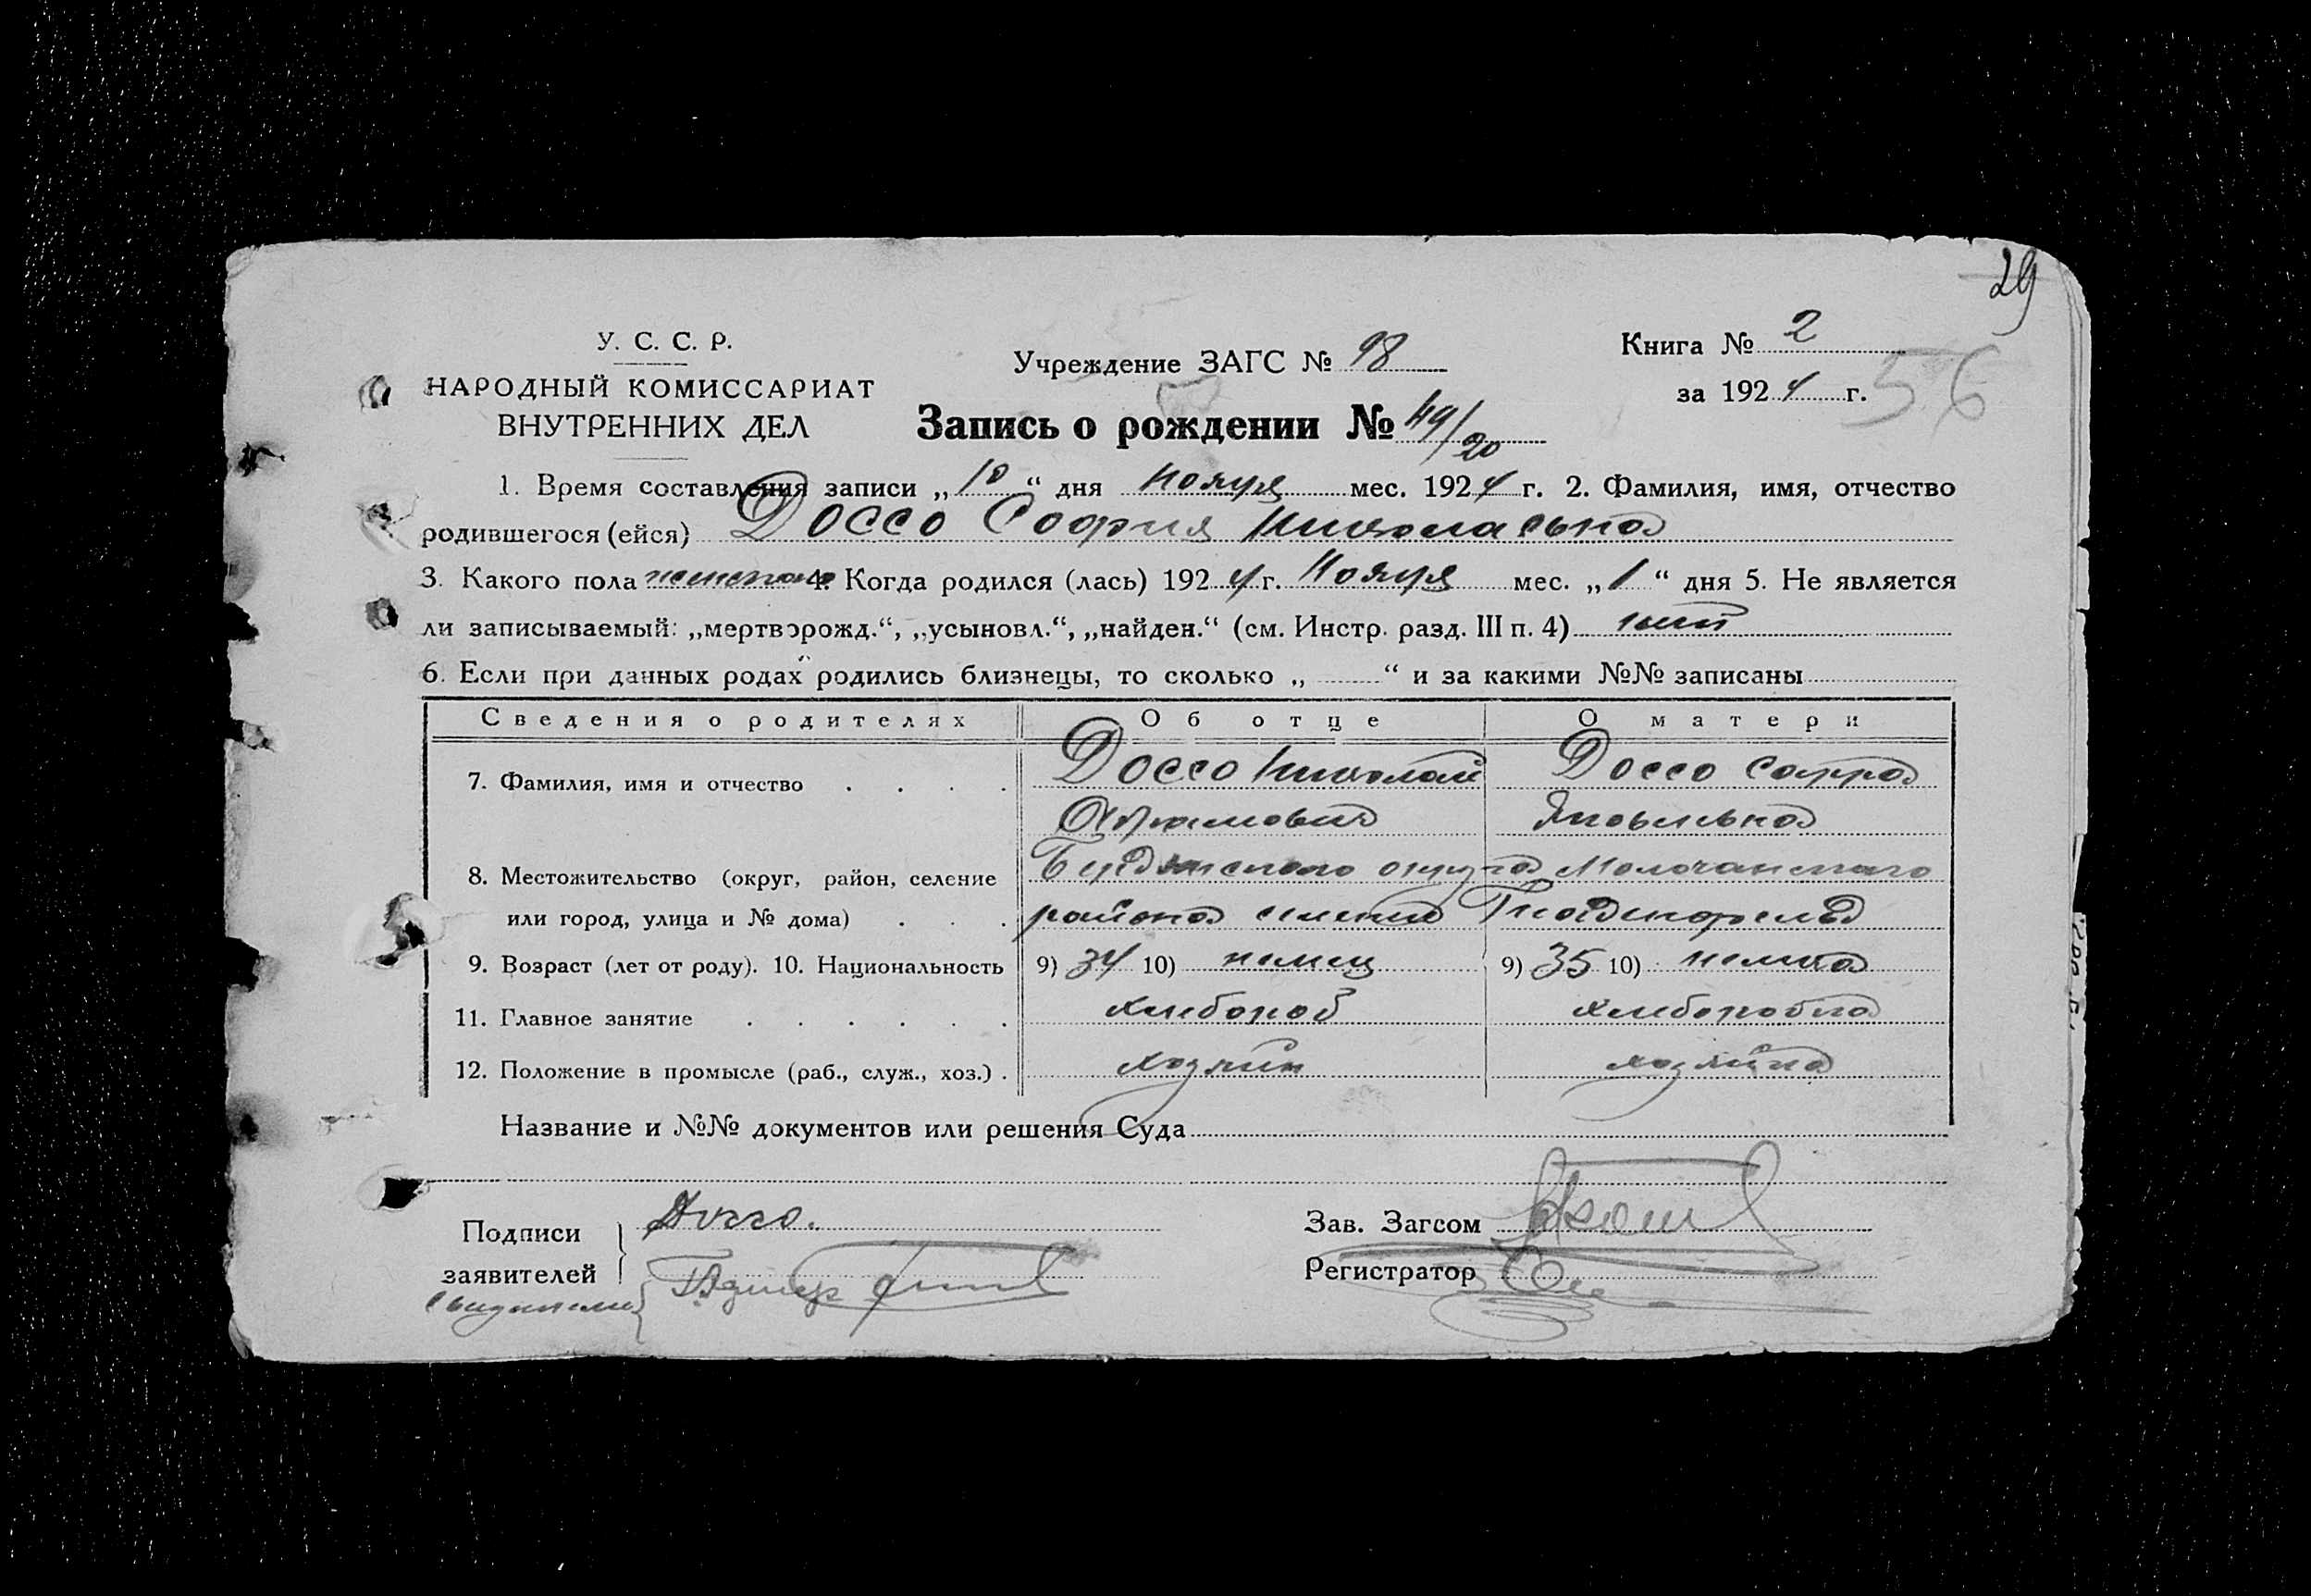 29
У. С. С. Р.
НАРОДНЫЙ КОМИССАРИАТ
ВНУТРЕННИХ ДЕЛ
Учреждение ЗАГС № 98
Книга № 2
за 1924 г.
56
Запись о рождении № 49/20
1. Время составления записи „10“ дня Ноября мес. 1924 г. 2. Фамилия, имя, отчество
родившегося (ейся) Доссо София Николаевна
3. Какого пола женского 4. Когда родился (лась) 1924 г. Ноября мес. „1“ дня 5. Не является
ли записываемый: „мертворожд.“, „усыновл.“, „найден.“ (см. Инстр. разд. III п. 4) нет
6. Если при данных родах родились близнецы, то сколько „ “ и за какими №№ записаны
Сведения о родителях Об отце О матери
7. Фамилия, имя и отчество Доссо Николай Доссо Сарра
Абрамович Яковлевна
8. Местожительство (округ, район, селение Молочанского
или город, улица и № дома) района селения Гнаденфельд
9. Возраст (лет от роду). 10. Национальность 9) 34 10) немец 9) 35 10) немка
11. Главное занятие хлебороб хлеборобка
12. Положение в промысле (раб., служ., хоз.) хозяин хозяйка
Название и №№ документов или решения Суда
Подписи Доссо.
заявителей
свидетели
Зав. Загсом
Регистратор